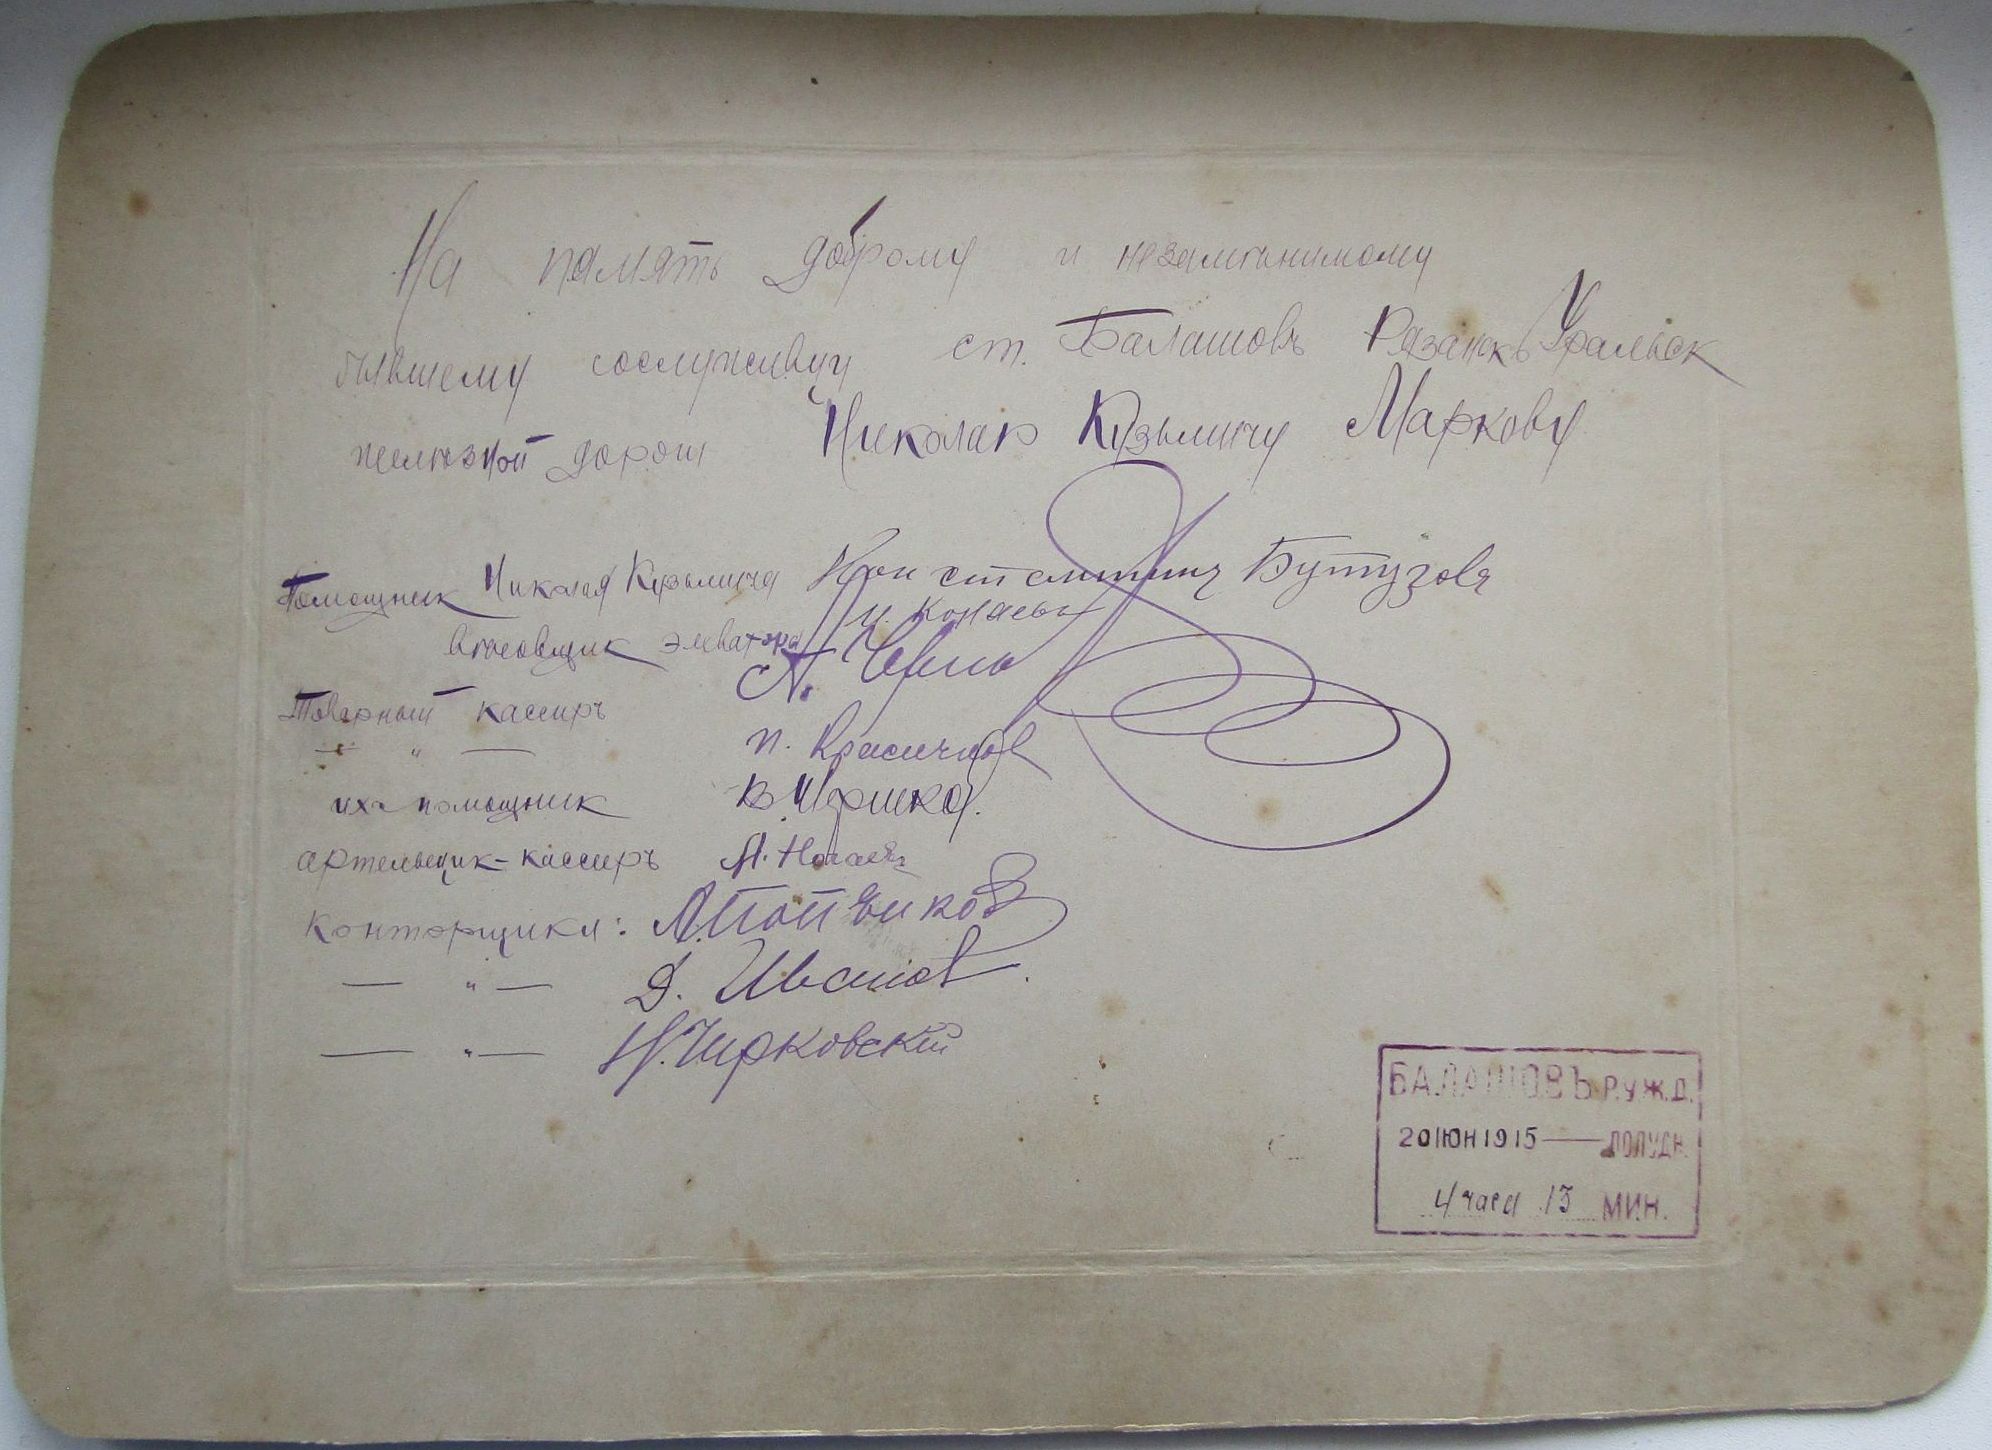 На память доброму и незамѣнимому
бывшему сослуживцу ст. Балашовъ Рязанск Уральск
желѣзной дороги Николаю Кузьмичу Маркову
Помощник Николая Кузьмича Константинъ Бутузовъ
вѣсовщик элеватора И. Конаевъ
Товарный кассиръ А.
— " — П.
их помощник В.
артельщик-кассиръ А. Ногаевъ
конторщики: А.
— " — Д. Иванов.
— " — Н. Чирковский
БАЛАШОВЪ Р.У.Ж.Д.
20 ІЮН 1915 — ПОЛУДН.
4 часа 13 МИН.